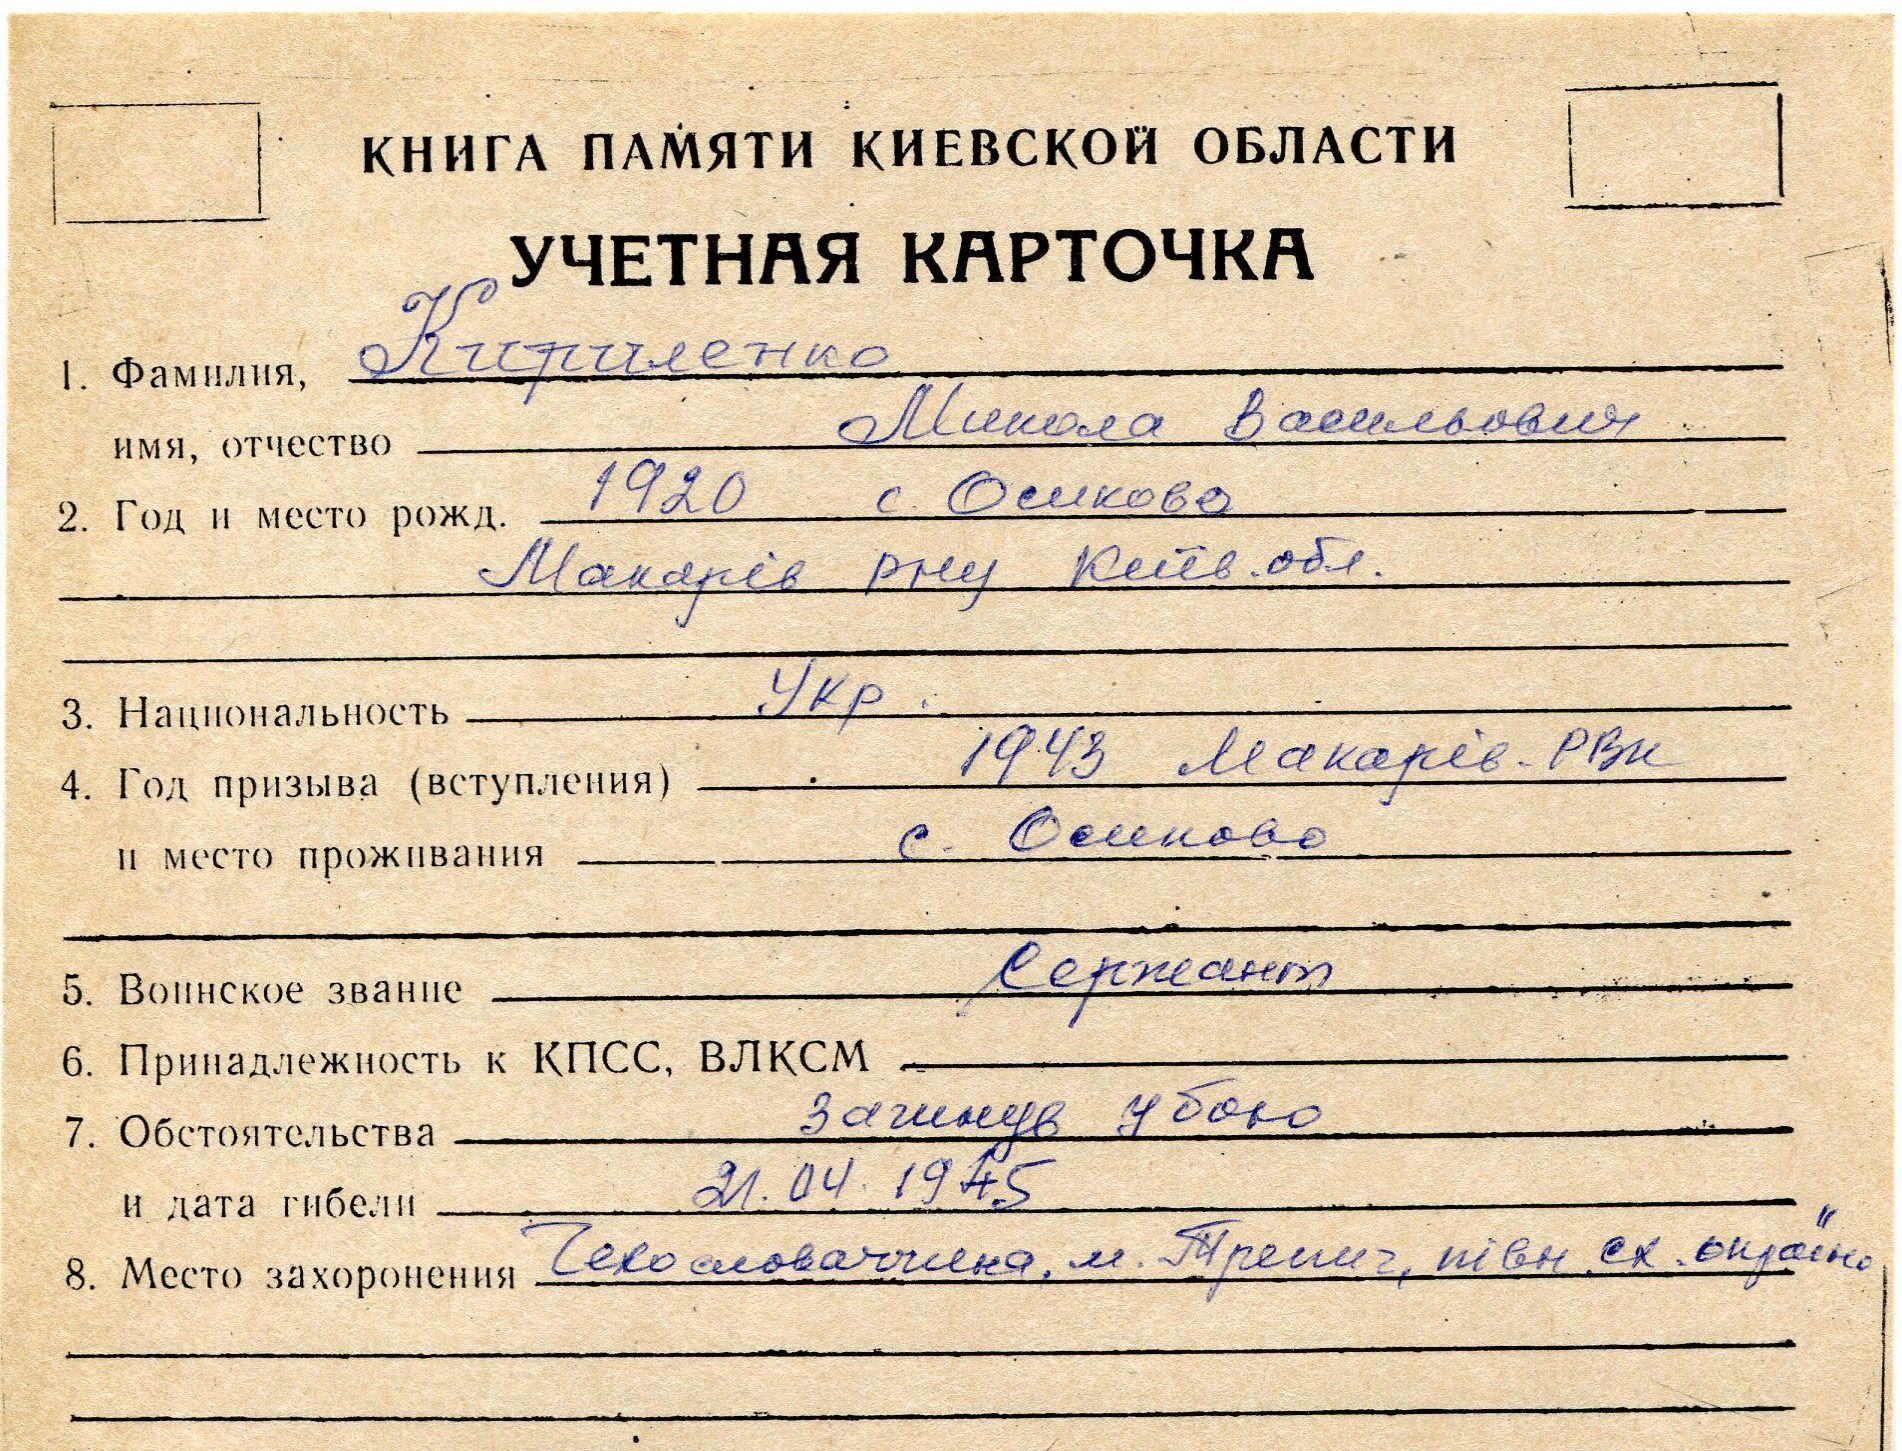 КНИГА ПАМЯТИ КИЕВСКОЙ ОБЛАСТИ
УЧЕТНАЯ КАРТОЧКА
1. Фамилия, Кириленко
имя, отчество Микола Васильович
2. Год и место рожд. 1920 с. Осиково
Макарів рну Київ. обл.
3. Национальность Укр.
4. Год призыва (вступления) 1943 Макарів. РВК
и место проживания с. Осиково
5. Воинское звание Сержант
6. Принадлежность к КПСС, ВЛКСМ
7. Обстоятельства Загинув у бою
и дата гибели 21.04.1945
8. Место захоронения Чехословаччина, м. Трепич, півн. сх. окраїна